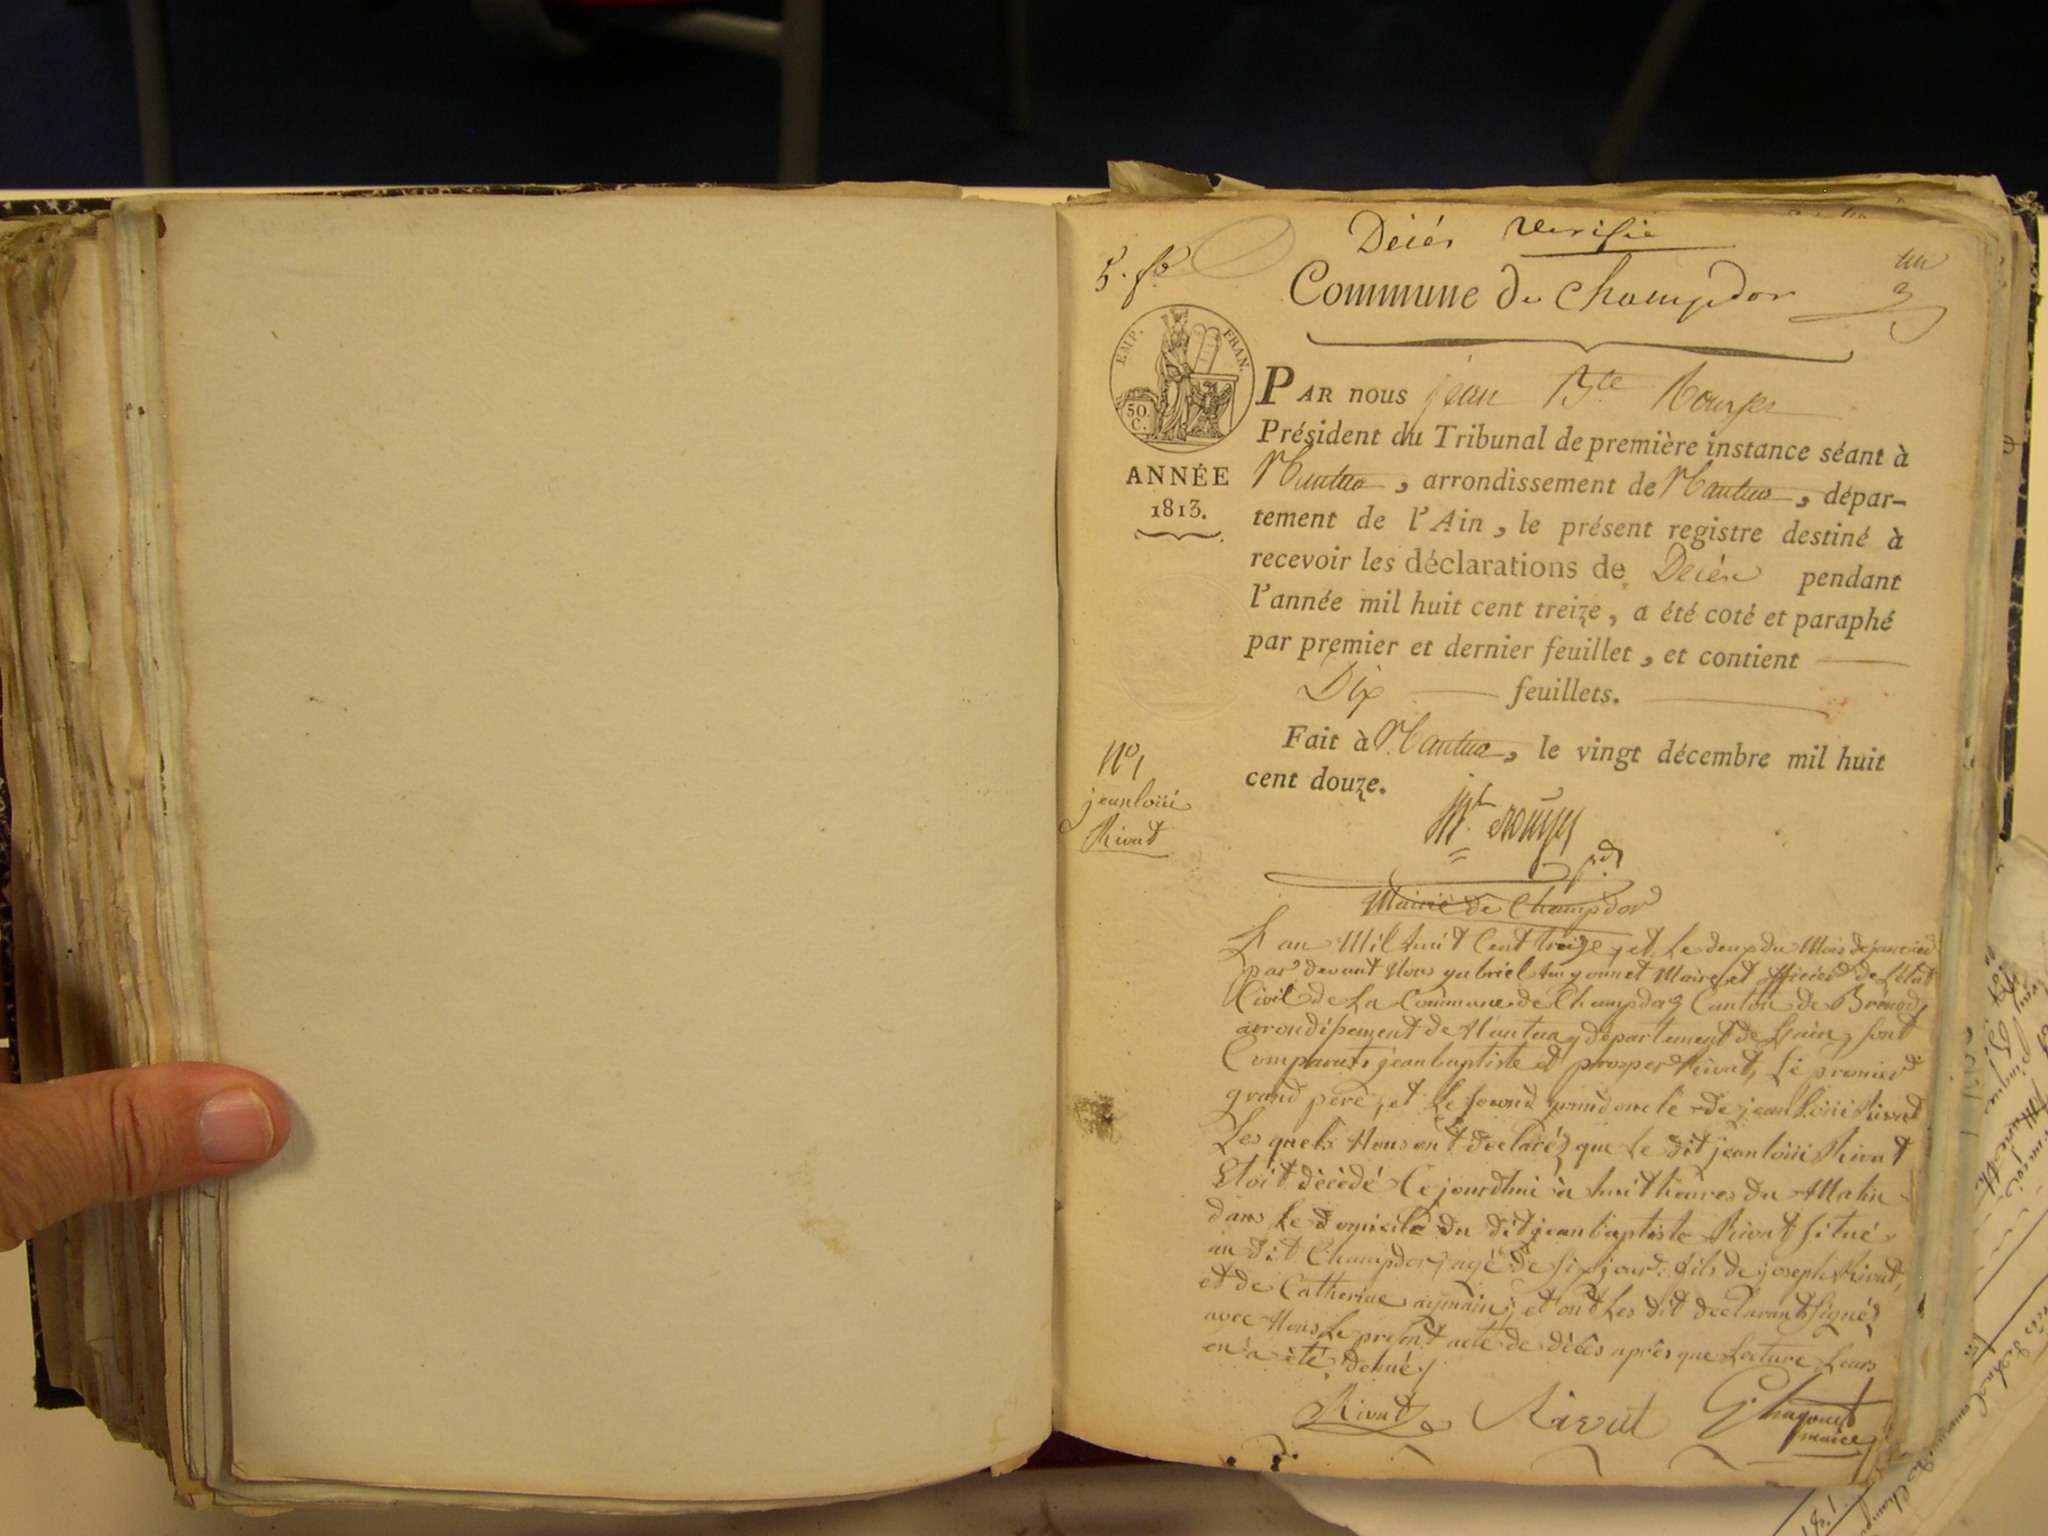 Décès Verifié
5. fo
un
Commune de Champdor
EMP. FRAN.
50 C.
ANNÉE
1813.
PAR nous jean Bte Rouyer
Président du Tribunal de première instance séant à
Nantua, arrondissement de Nantua, dépar-
tement de l'Ain, le présent registre destiné à
recevoir les déclarations de Décès pendant
l'année mil huit cent treize, a été coté et paraphé
par premier et dernier feuillet, et contient
Dix feuillets.
Fait à Nantua, le vingt décembre mil huit
cent douze.
No 1
jean loüi
Rivat
Mairie de Champdor
L'an Mil huit Cent treize, et Le deux du Mois de janvier
par devant Nous gabriel Maire et officier de L'état
Civil de La Commune de Champdor Canton de Brénod,
arrondissement de Nantua, département de L'ain, sont
Comparuts jean baptiste et prosper Rivat, Le premier
grand pere, et Le second grand oncle de jean Loüi Rivat
Les quels Nous ont declarés que Le dit jean loüi Rivat
Etoit décédé Ce jourdhui à huit heures du Matin
dans Le domicile du dit jean baptiste Rivat situé
au dit Champdor, agé de six jours fils de joseph Rivat,
et de Catherine aymain; et ont Les dit declarants Signés
avec Nous Le present acte de décès après que Lecture Leurs
en a été donnéy
Rivat Rivat
maire